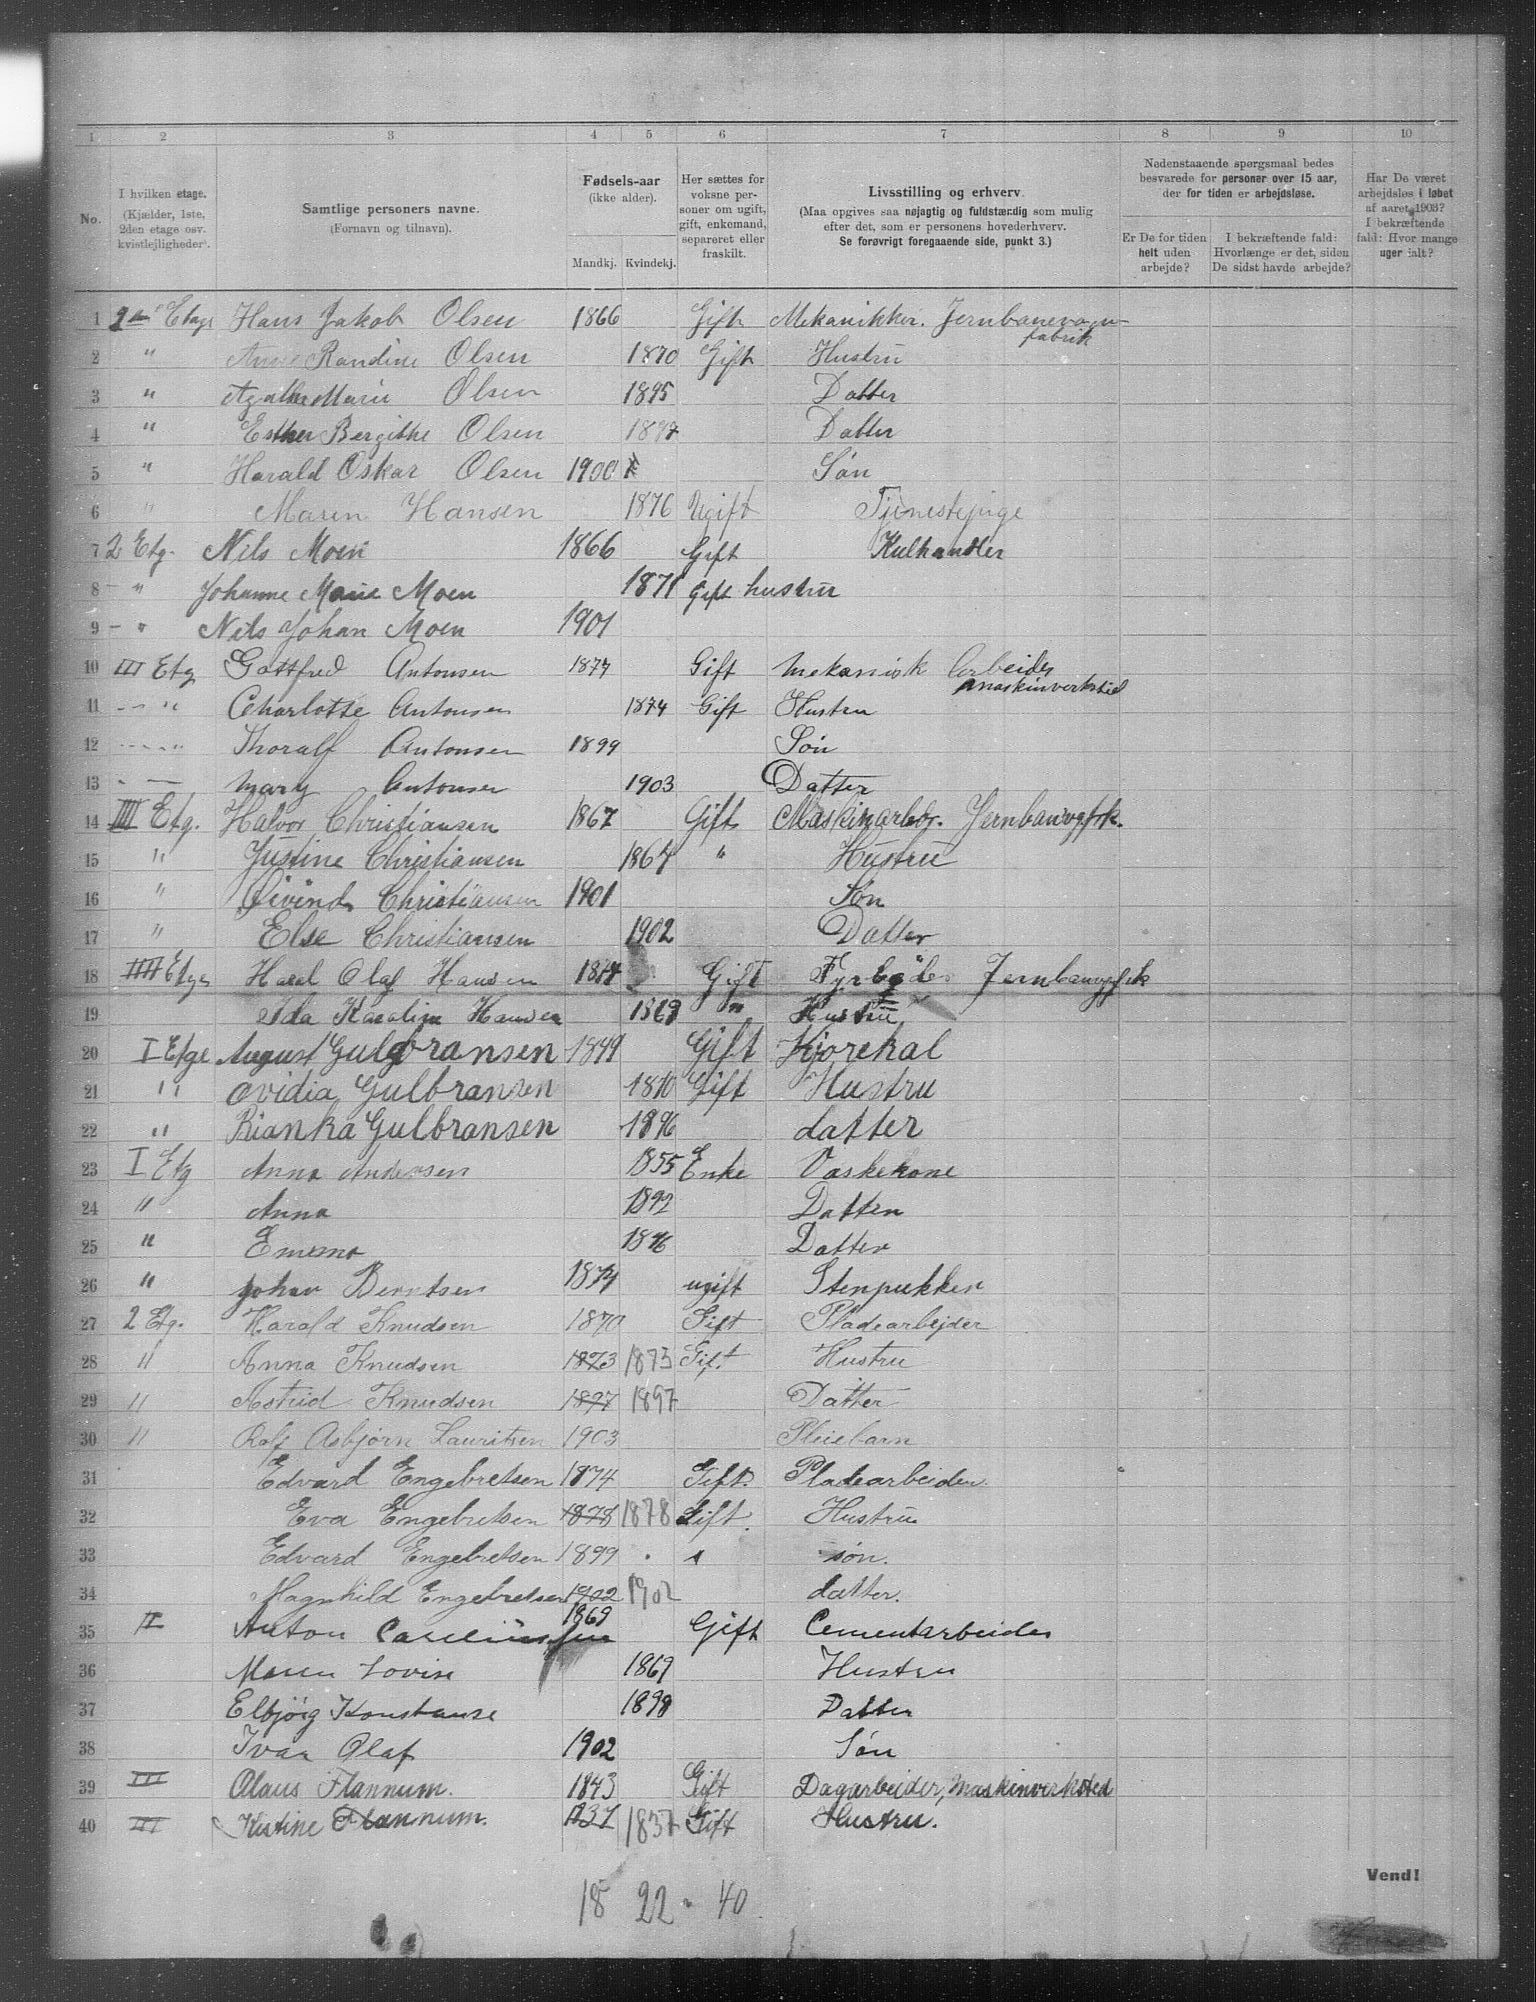 1 2 3 4 5 6 7 8 9 10
No.
I hvilken etage.
(Kjælder, 1ste,
2den etage osv.
kvistlejligheder).
Samtlige personers navne.
(Fornavn og tilnavn).
Fødsels-aar
(ikke alder).
Mandkj. Kvindekj.
Her sættes for
voksne per-
soner om ugift,
gift, enkemand,
separeret eller
fraskilt.
Livsstilling og erhverv.
(Maa opgives saa nøjagtig og fuldstændig som mulig
efter det, som er personens hovederhverv.
Se forøvrigt foregaaende side, punkt 3.)
Nedenstaaende spørgsmaal bedes
besvarede for personer over 15 aar,
der for tiden er arbejdsløse.
Er De for tiden
helt uden
arbejde?
I bekræftende fald:
Hvorlænge er det, siden
De sidst havde arbejde?
Har De været
arbejdsløs i løbet
af aaret 1903?
I bekræftende
fald: Hvor mange
uger ialt?
1 2den Etage Hans Jakob Olsen 1866 Gift Mekanikker. Jernbanevogn
fabrik
2 " Anne Randine Olsen 1870 Gift Hustru
3 " Agathe Marie Olsen 1895 Datter
4 " Esther Bergithe Olsen 1897 Datter
5 " Harald Oskar Olsen 1900 Søn
6 " Maren Hansen 1876 Ugift Tjenestepige
7 2 Etg. Nils Moen 1866 Gift Kulhandler
8 - " Johanne Marie Moen 1871 Gift hustru
9 - " Nils Johan Moen 1901
10 III Etg Gottfred Antonsen 1874 Gift Mekanisk Arbeider
maskinverksted
11 - - " Charlotte Antonsen 1874 Gift Hustru
12 - - - " Thoralf Antonsen 1899 Søn
13 - — Mary Antonsen 1903 Datter
14 IIII Etg. Halvor Christiansen 1867 Gift Maskinarbdr. Jernbanvgfrk.
15 " Justine Christiansen 1867 " Hustru
16 " Øivind Christiansen 1901 Søn
17 " Else Christiansen 1902 Datter
18 IIII Etge Haral Olaf Hansen Gift Fyrbøder Jernbanvgfrk
19 Ida Karoline Hansen 1869 " Hustru
20 I Etge August Gulbransen 1849 Gift Kjørekal
21 " Ovidia Gulbransen 1870 Gift Hustru
22 " Bianka Gulbransen 1896 datter
23 I Etg Anna Andersen 1855 Enke Vaskekone
24 " Anna 1892 Datter
25 " Emma 1896 Datter
26 " Johan Berntsen 1874 ugift Stenpukker
27 2 Etg. Harald Knudsen 1870 Gift Pladearbejder
28 " Anna Knudsen 1873 1873 Gift Hustru
29 " Astrid Knudsen 1897 1897 Datter
30 " Rolf Asbjørn Lauritsen 1903 Pleiebarn
31 Edvard Engebretsen 1874 Gift. Pladearbeider.
32 Eva Engebretsen 1878 1878 Gift. Hustru
33 Edvard Engebretsen 1899 søn.
34 Magnhild Engebretsen 1902 1902 datter.
35 II Anton 1869 Gift Cementarbeider
36 Maren Lovise 1869 Hustru
37 Elbjørg Konstanse 1898 Datter
38 Ivar Olaf 1902 Søn
39 III Olaus Flannum. 1843 Gift Dagarbeider, Maskinverksted
40 III Kistine Flannum. 1837 1837 Gift Hustru.
Vend!
18 22 - 40